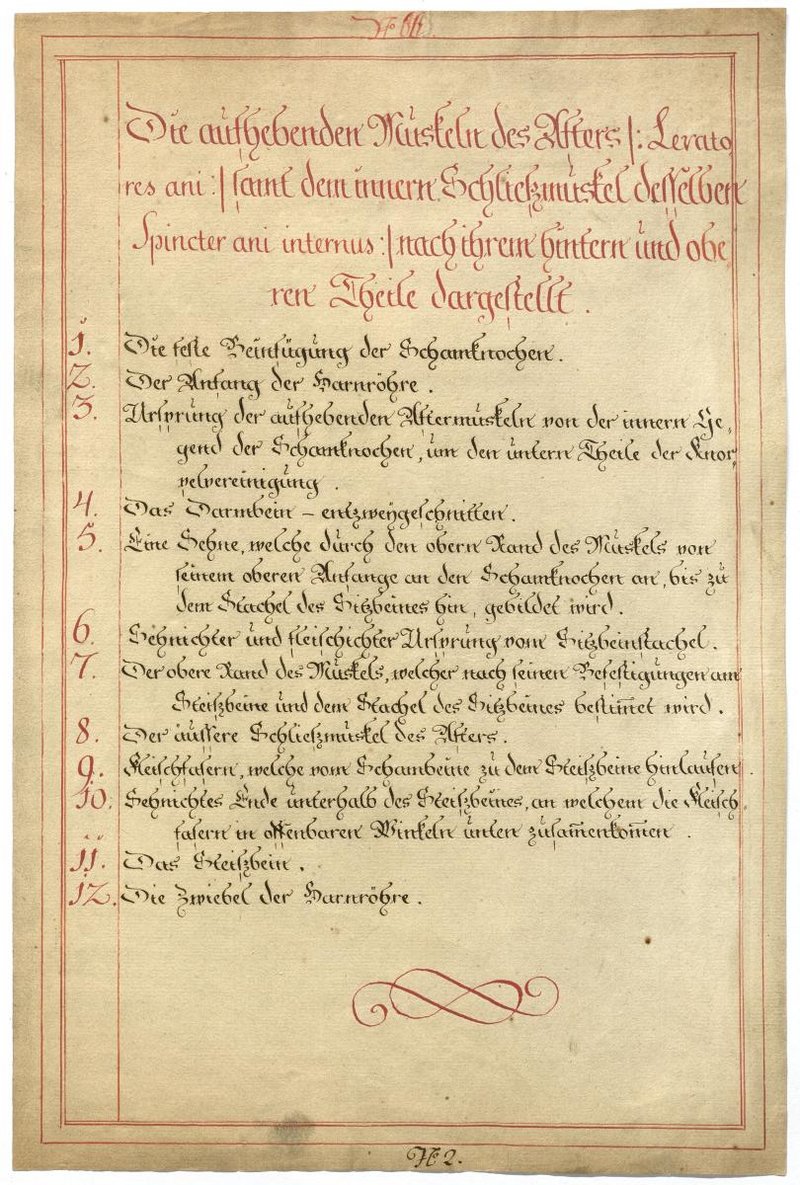 Nº 66.
Die aufhebenden Muskeln des Afters |: Levato
res ani :| samt dem innern Schließmuskel desselben
Spincter ani internus :| nach ihrem hintern und obe
ren Theile dargestellt .
1. Die feste Beinfügung der Schamknochen .
2. Der Anfang der Harnröhre .
3. Ursprung der aufhebenden Aftermuskeln von der innern Ge,
gend der Schamknochen, um den untern Theile der Knor,
pelvereinigung .
4. Das Darmbein – entzweygeschnitten .
5. Eine Sehne, welche durch den obern Rand des Muskels von
seinem oberen Anfange an den Schamknochen an, bis zu
dem Stachel des Sitzbeines hin, gebildet wird .
6. Sehnichter und fleischichter Ursprung vom Sitzbeinstachel .
7. Der obere Rand des Muskels, welcher nach seinen Befestigungen am
Steißbeine und dem Stachel des Sitzbeines bestim̅et wird .
8. Der äussere Schließmuskel des Afters .
9. Fleischfasern, welche vom Schambeine zu dem Steißbeine hinlaufen .
10. Sehnichtes Ende unterhalb des Steißbeines, an welchem die Fleisch
fasern in offenbaren Winkeln unten zusam̅enkom̅en .
11. Das Steißbein .
12. Die Zwiebel der Harnröhre .